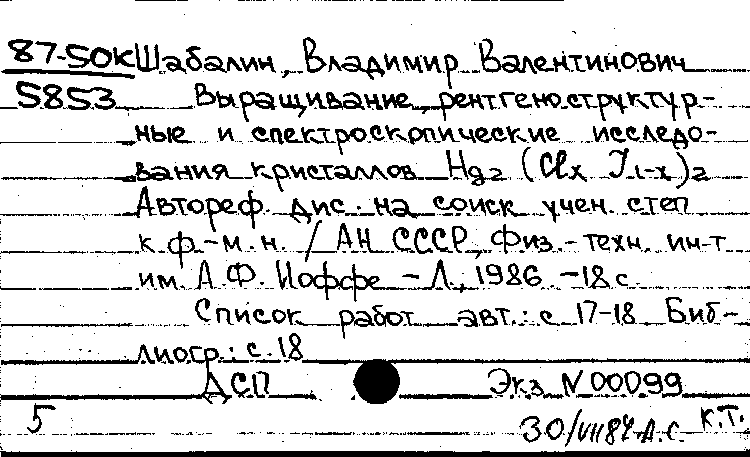 87-50К Шабалин, Владимир Валентинович
5853 Выращивание, рентгеноструктур-
ные и спектроскопические исследо-
вания кристаллов Hg2 (Clx J1-x)2
Автореф. дис. на соиск учен. степ
к. ф.-м. н. / АН СССР, Физ.-техн. ин-т
им. А.Ф. Иоффе - Л., 1986 -18 с.
Список работ авт.: с 17-18 Биб-
лиогр.: с. 18
ДСП Экз N 00099
5 30/VII87 А.С. К.Т.